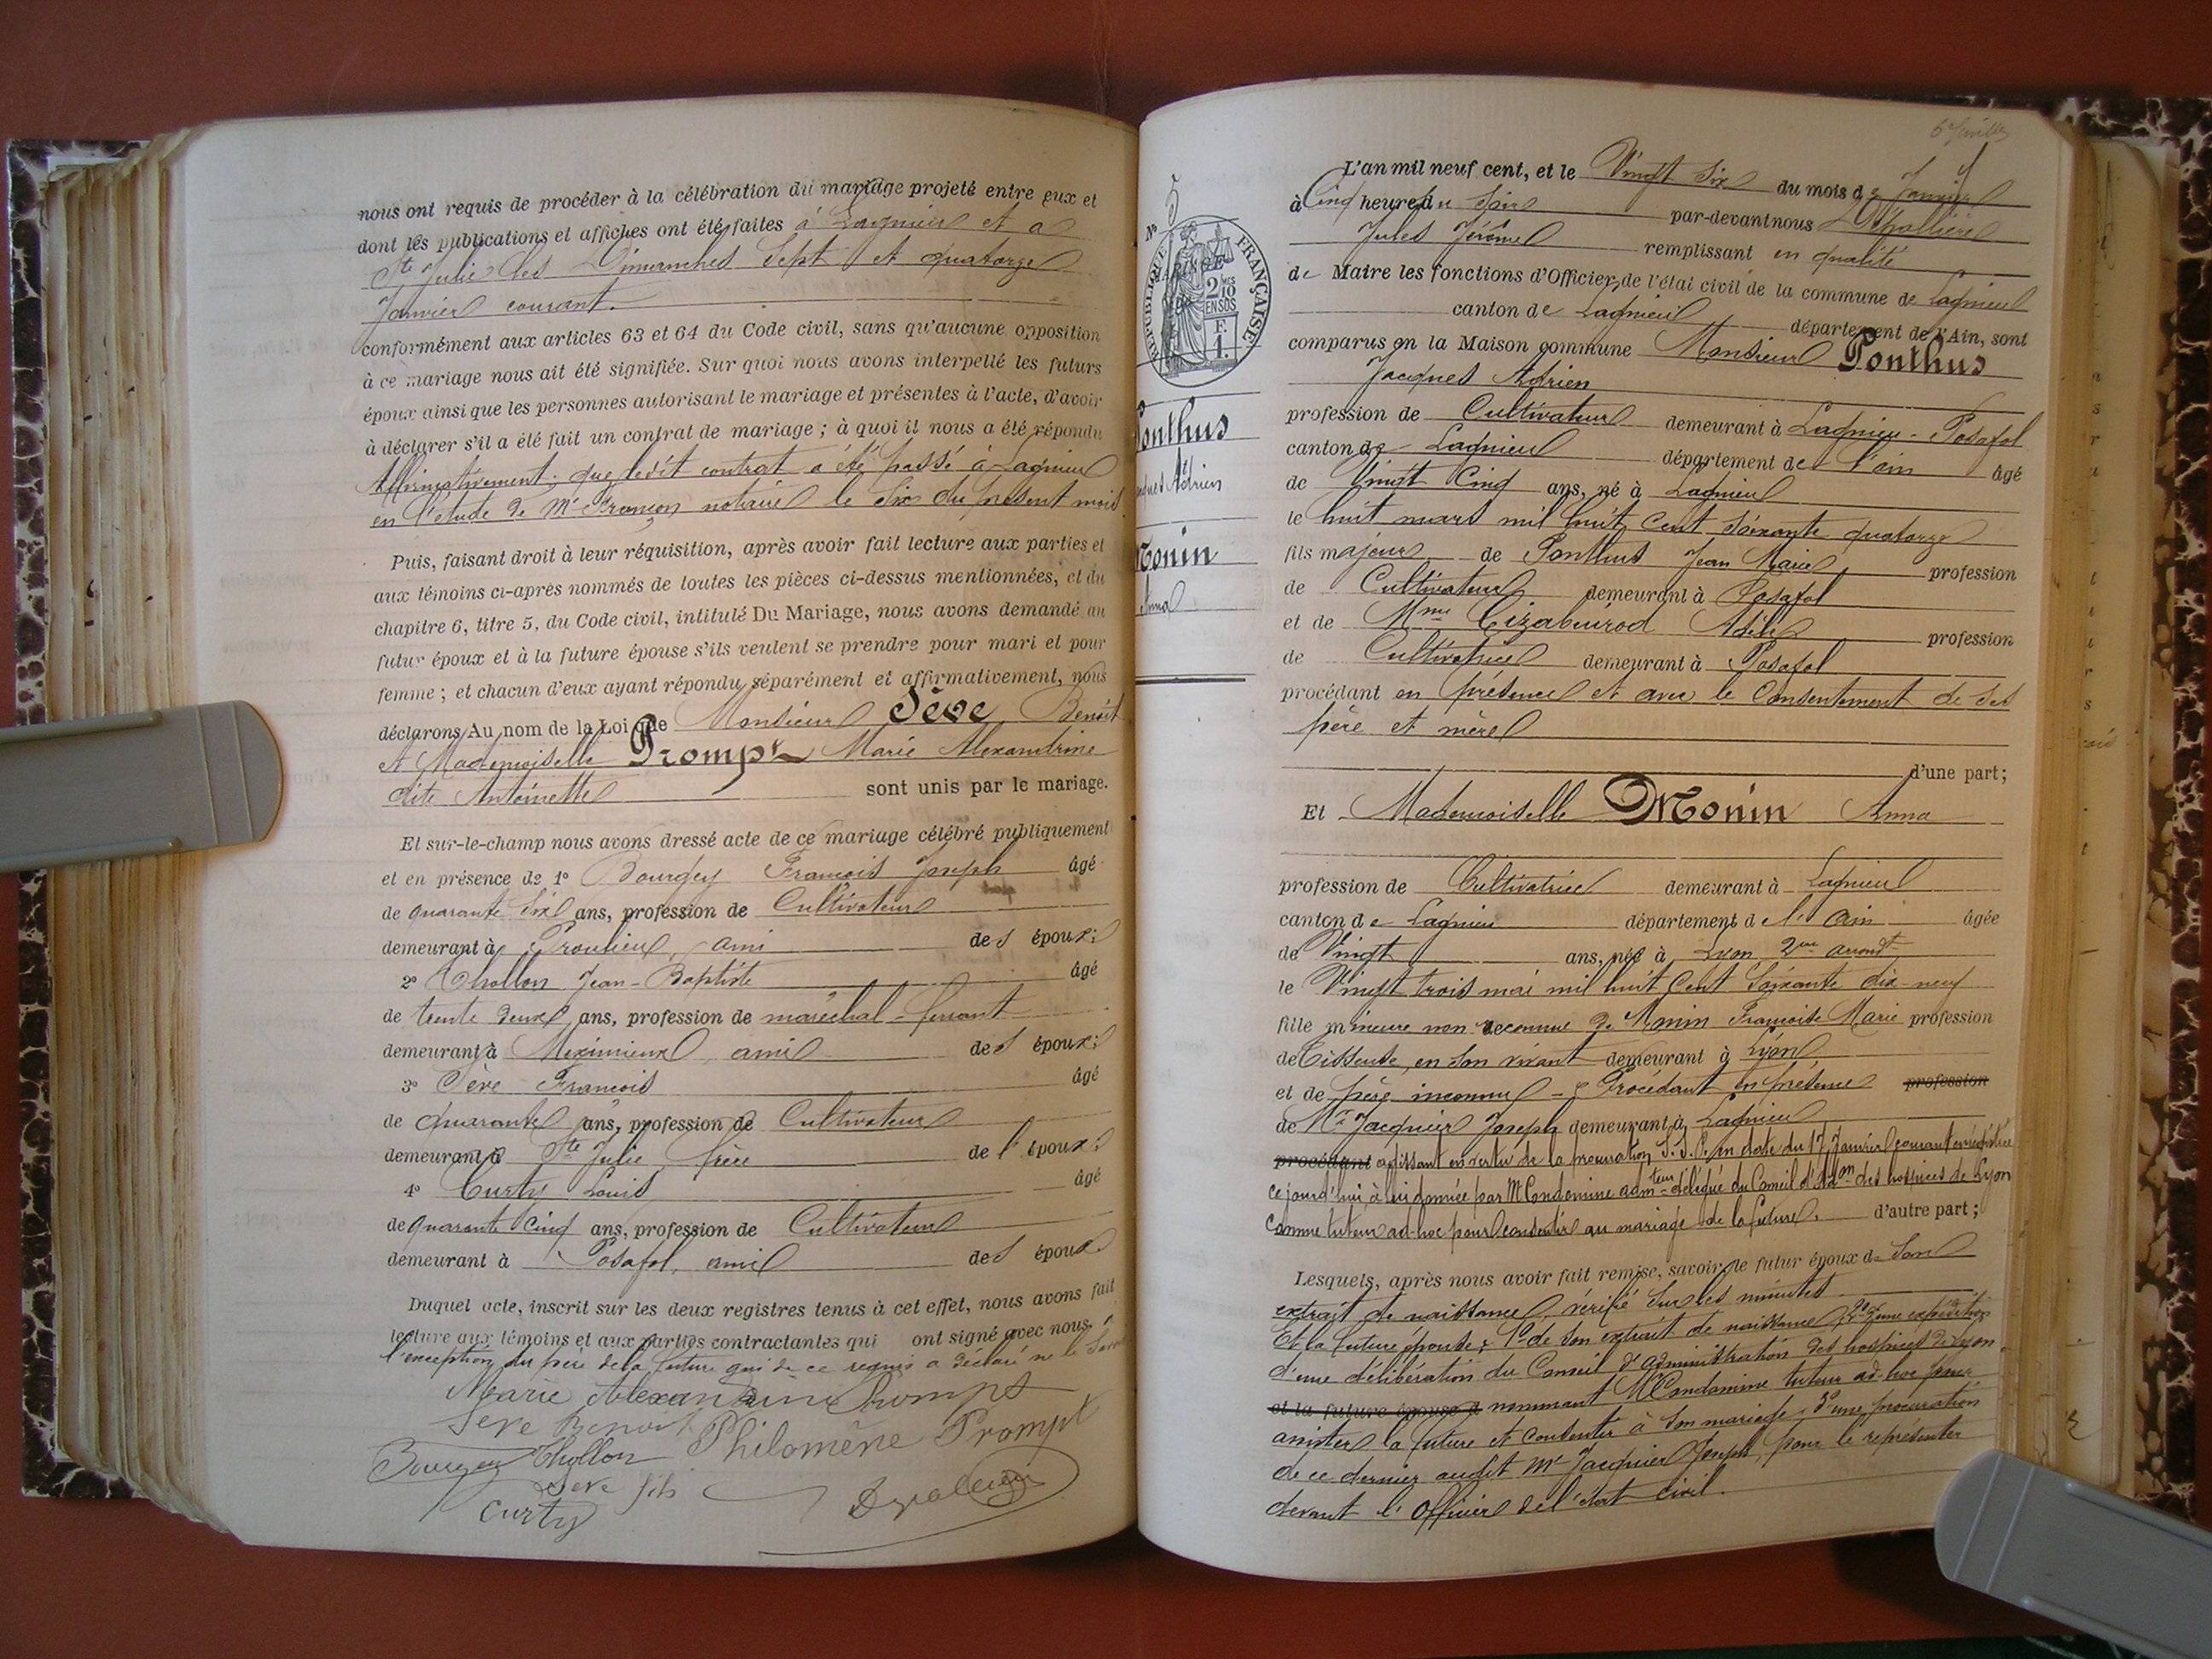 nous ont requis de procéder à la célébration du mariage projeté entre eux et
dont les publications et affiches ont été faites à Lagnieu et a
Ste Julie les Dimanches Sept et quatorze
Janvier courant.
conformément aux articles 63 et 64 du Code civil, sans qu'aucune opposition
à ce mariage nous ait été signifiée. Sur quoi nous avons interpellé les futurs
époux ainsi que les personnes autorisant le mariage et présentes à l'acte, d'avoir
à déclarer s'il a été fait un contrat de mariage ; à quoi il nous a été répondu
Affirmativement : que ledit contrat a été passé à Lagnieu
en l'étude de Me Françon notaire le six du présent mois.
Puis, faisant droit à leur réquisition, après avoir fait lecture aux parties et
aux témoins ci-après nommés de toutes les pièces ci-dessus mentionnées, et du
chapitre 6, titre 5, du Code civil, intitulé Du Mariage, nous avons demandé au
futur époux et à la future épouse s'ils veulent se prendre pour mari et pour
femme ; et chacun d'eux ayant répondu séparément et affirmativement, nous
déclarons Au nom de la Loi que Monsieur Sève Benoît
et Mademoiselle Prompt Marie Alexandrine
dite Antoinette sont unis par le mariage.
Et sur-le-champ nous avons dressé acte de ce mariage célébré publiquement
et en présence de 1° Bourgey François Joseph âgé
de quarante six ans, profession de Cultivateur
demeurant à Proulieu, ami des époux;
2° Chollon Jean-Baptiste âgé
de trente deux ans, profession de maréchal-ferrant
demeurant à Meximieux, ami des époux;
3° Sève François âgé
de quarante ans, profession de Cultivateur
demeurant à Ste Julie frère de l'époux;
4° Curty Louis âgé
de quarante cinq ans, profession de Cultivateur
demeurant à Posafol, ami des époux.
Duquel acte, inscrit sur les deux registres tenus à cet effet, nous avons fait
lecture aux témoins et aux parties contractantes qui ont signé avec nous.
l'exception du père de la future qui de ce requis a déclaré ne le
Marie Alexandrine Prompt
Seve Benoit Philomène Prompt
Bourgey Chollon
Seve fils
Curty
L'an mil neuf cent, et le Vingt six du mois de Janvier
à Cinq heure du soir par-devant nous
Jules Jérôme remplissant en qualité
de Maire les fonctions d'Officier de l'état civil de la commune de Lagnieu
canton de Lagnieu département de l'Ain, sont
comparus en la Maison commune Monsieur Ponthus
Jacques Adrien
profession de Cultivateur demeurant à Lagnieu - Posafol
canton de Lagnieu département de l'ain âgé
de Vingt Cinq ans, né à Lagnieu
le huit mars mil huit cent soixante quatorze
fils majeur de Ponthus Jean Marie profession
de Cultivateur demeurant à Posafol
et de Mme Cizabuiroz Adèle profession
de Cultivatrice demeurant à Posafol
procédant en présence et avec le Consentement de ses
père et mère
d'une part;
Et Mademoiselle Monin Anna
profession de Cultivatrice demeurant à Lagnieu
canton de Lagnieu département de l'ain âgée
de Vingt ans, née à Lyon 2me arrondt
le Vingt trois mai mil huit Cent Soixante dix-neuf
fille mineure non reconnue de Monin Françoise Marie profession
de Tisseuse, en son vivant demeurant à Lyon
et de père inconnu - Procédant en présence profession
de Mr Jacquier Joseph demeurant à Lagnieu
procédant agissant en vertu de la procuration S.S.P. en date du 17 Janvier courant enregistrée
ce jourd'hui, à lui donnée par M Condamine admteur délégué du Conseil d'Adon des hospices de Lyon
comme tuteur ad-hoc pour consentir au mariage de la future. d'autre part;
Lesquels, après nous avoir fait remise, savoir, le futur époux de Son
extrait de naissance, vérifié sur les minutes
Et la future épouse; 1° de son extrait de naissance 2° d'une expédition
d'une délibération du Conseil d'administration des hospices de Lyon
et la future épouse d nommant M Condamine tuteur ad-hoc pour
assister la future et consentir à son mariage, 3° d'une procuration
de ce dernier audit Mr Jacquier Joseph, pour le représenter
devant l'Officier de l'état civil.
N° 5
RÉPUBLIQUE FRANÇAISE
2 10
EN SUS
F.
1.
Ponthus
Adrien
Monin
Anna